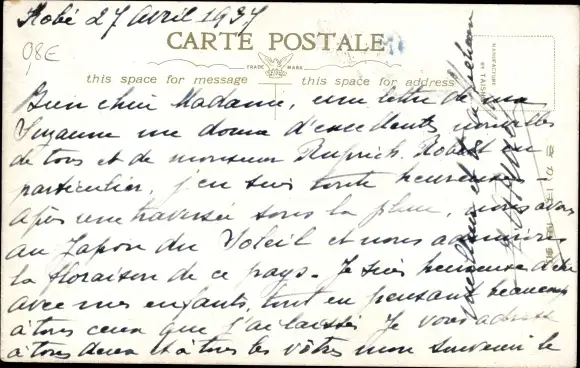 Kobé 27 avril 1937
08E
CARTE POSTALE
TRADE MARK
this space for message
this space for address
MANUFACTURED BY TAISHO
Bien chère Madame, une lettre de ma
Suzanne me donna d'excellentes nouvelles
de tous et de monsieur Ruprich Robert en
particulier, j'en suis toute heureuse -
Après une traversée sous la pluie, nous avons
au Japon du Soleil et nous admirons
la floraison de ce pays. Je suis heureuse d'être
avec mes enfants, tout en pensant beaucoup
à tous ceux que j'ai laissés. Je vous adresse
à tous deux et à tous les vôtres mon souvenir le
meilleur et